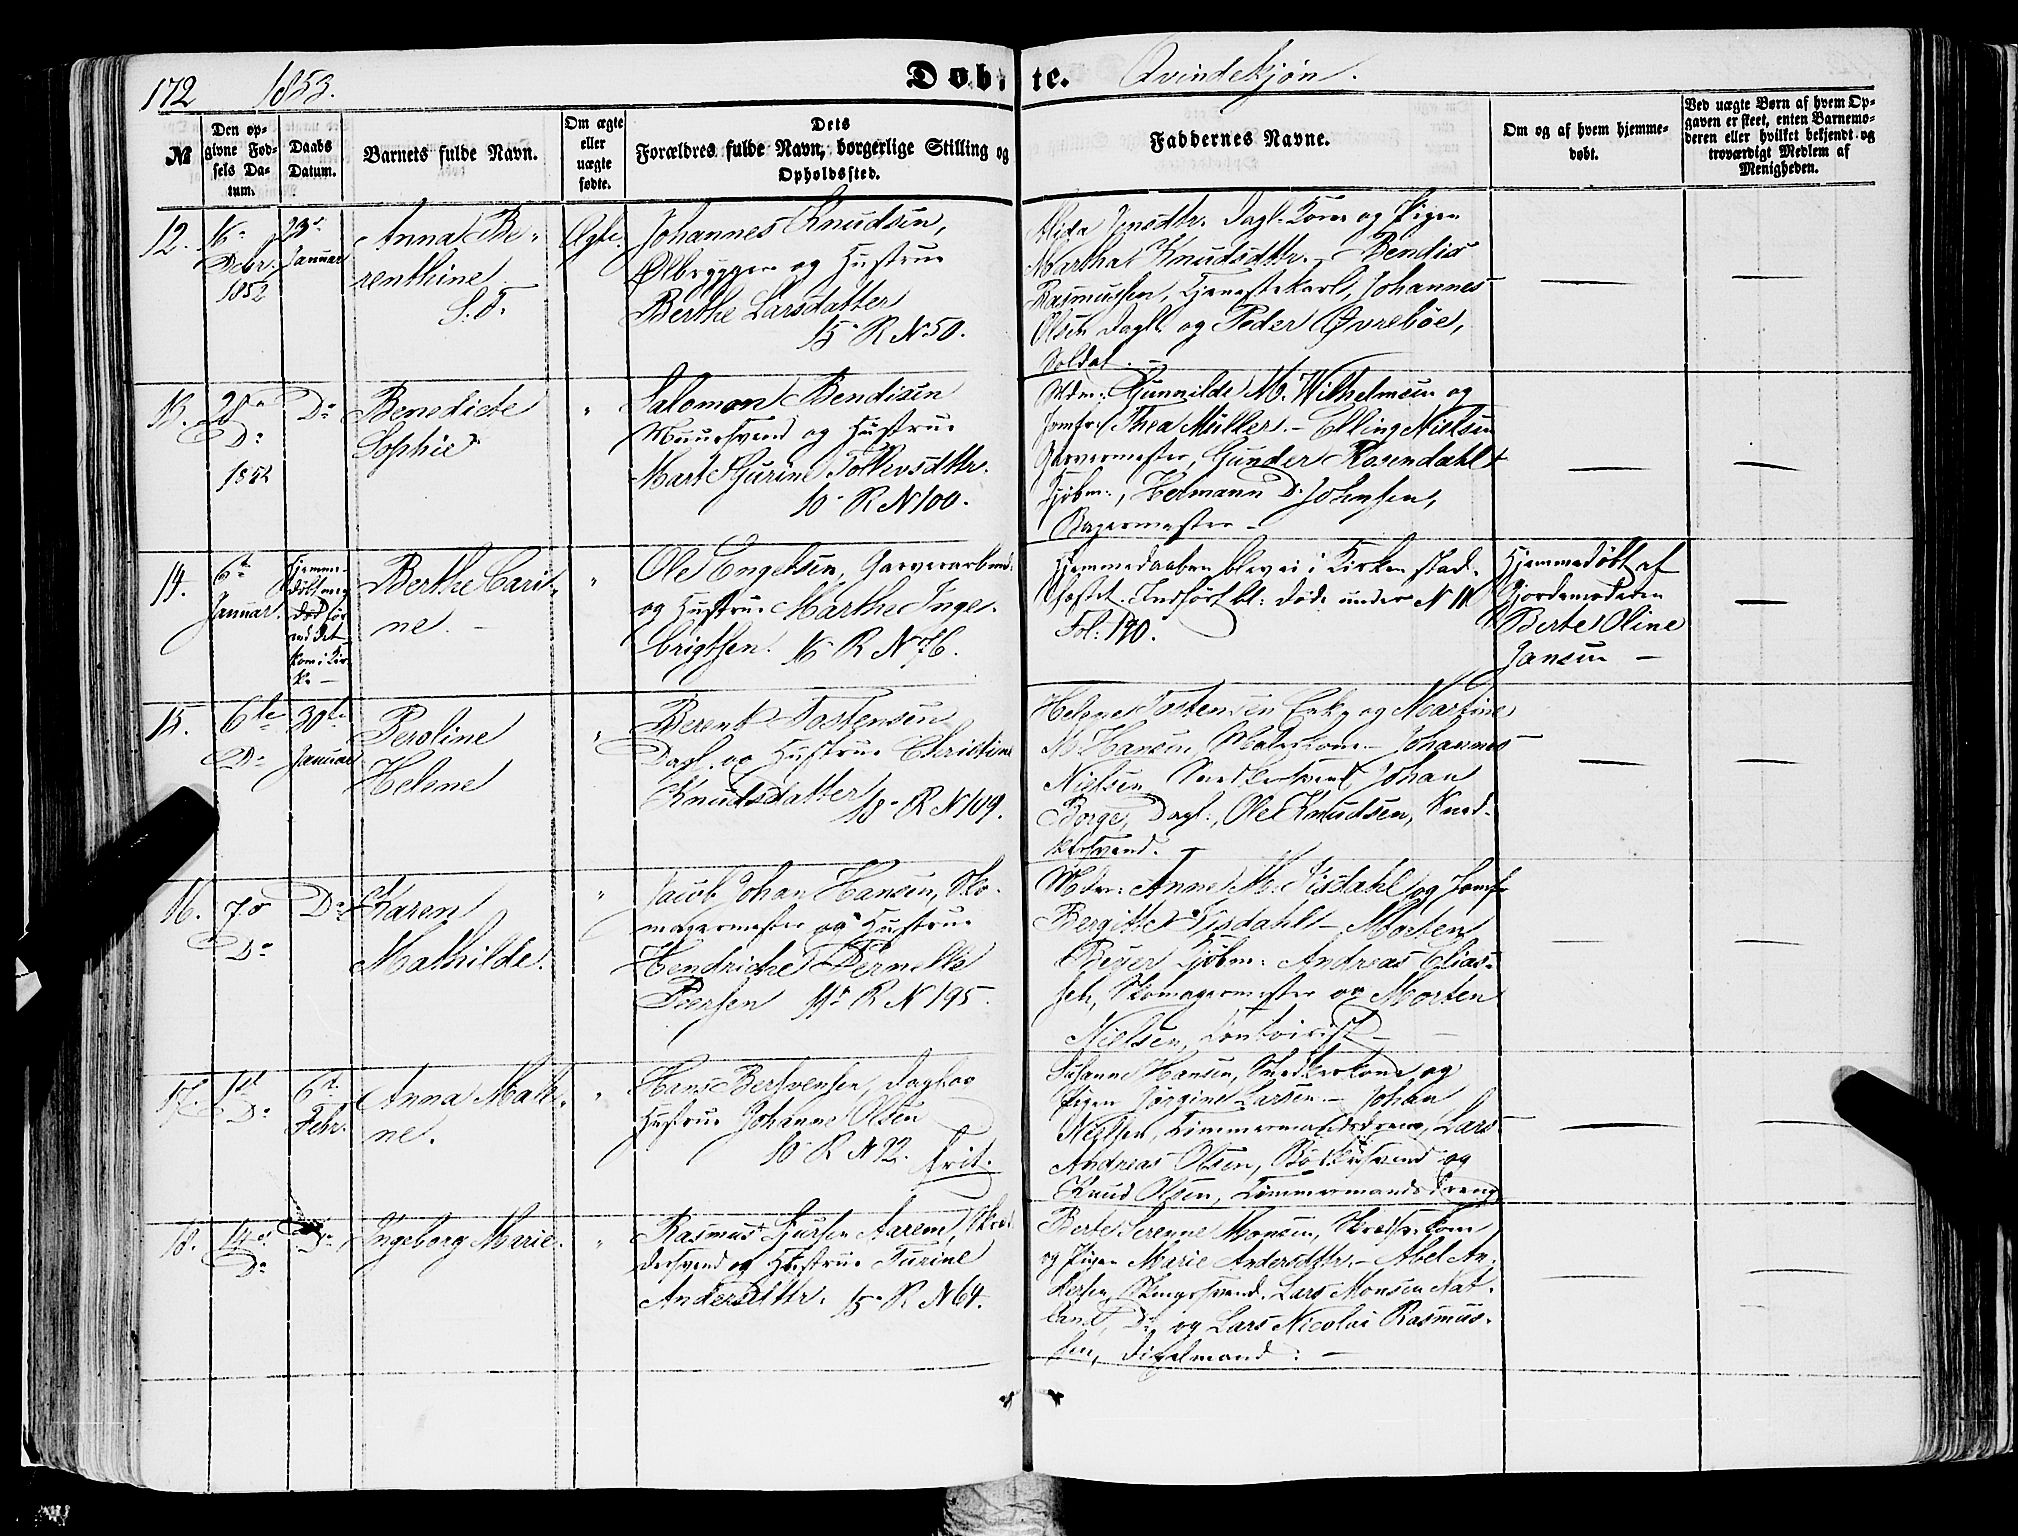 172 1853. Døbte. Qvindekjøn.
№
Den opgivne Fødsels Datum.
Daabs Datum.
Barnets fulde Navn.
Om ægte eller uægte fødte.
Dets
Forældres fulde Navn, borgerlige Stilling og
Opholdssted.
Faddernes Navne.
Om og af hvem hjemmedøbt.
Ved uægte Børn af hvem Opgaven er skeet, enten Barnemoderen eller hvilket bekjendt og troværdigt Medlem af Menigheden.
12. 16 Debr. 1852
23de Januar
Anna Berenthine
S. T.
Ægte.
Johannes Knudsen,
Ølbrygger og Hustrue
Berthe Larsdatter
15 R N 50.
Jensdtr. Dagl. Kone og Pigen
Martha Knudsdttr. - Bendix
Rasmussen, Tjenestekarl, Johannes
Olsen Dagl. og Peder Øvrebøe,
Soldat. -
13. 28 Do 1852
Do
Benedicte
Sophie
"
Salomon Bendixen
Muursvend og Hustrue
Mart Gurine Tollevsdttr.
10 R N 100.
Mdm: Gunnilde M. Wilhelmsen og
Jomfr: Thea Müller. - Elling Nielsen
Garvermester, Gunder Rosendahl
Kjøbm:, Hermann D. Johnsen,
Bagermester -
14. 6te Januar.
Hjemmedøbt men død førend det kom i Kirke -
Berthe Carine. -
"
Ole Engelsen, Garverarbeid.
og Hustrue Marthe Ingebrigtsen. 16 R N 76.
Hjemmedaaben blev ei i Kirken stadfæstet. Indført bl: døde under N 11
Fol: 190.
Hjemmedøbt af
Gjordemoderen
Berte Oline
Jansen -
15. 6te Do
30te Januar
Peroline
Helene
"
Berent Tostensen
Dagl. og Hustrue Christine
Knudsdatter 18 R N 109.
Helene Tostensen Enke og Martine
M. Hansen, Malerkone - Johannes
Nielsen, Snedkersvend, Johan
Borge, Dagl:, Ole Knudsen, Snedkersvend. -
16. 7de Do
Do
Karen
Mathilde.
"
Jacob Johan Hansen, Skomagermester og Hustrue
Hendriche Pernelle
Peersen R N 195.
Mdm: Anne M. Tisdahl og Jomfr
Bergitte Tisdahl - Morten
Beyer Kjøbm: Andreas Eliassen, Skomagermester og Morten
Nielsen, Contoirist -
17. 1ste Do
6te Febr.
Anna Mathine.
"
Hans Bertvensen, Dagl. og
Hustrue Johanne Olsen
10 R N 92. frit.
Susanne Hansen, Snedkerkone og
Pigen Jørgine Larsen. - Johan
Nielsen, Tømmermandsdreng, Lars
Andreas Olsen, Bødkersvend og
Knud Olsen, Tømmermandsdreng
18. 14de Do
Do
Ingeborg Marie.
"
Rasmus Sjursen Aarem, Skræddersvend og Hustrue Turine
Andersdttr. 15 R N 64.
Berte Serenne Monsen, Kone
og Pigen Marie Andersdttr. - Abel Andersen, svend, Lars Monsen Natland, Do og Lars Nicolai Rasmussen, : -